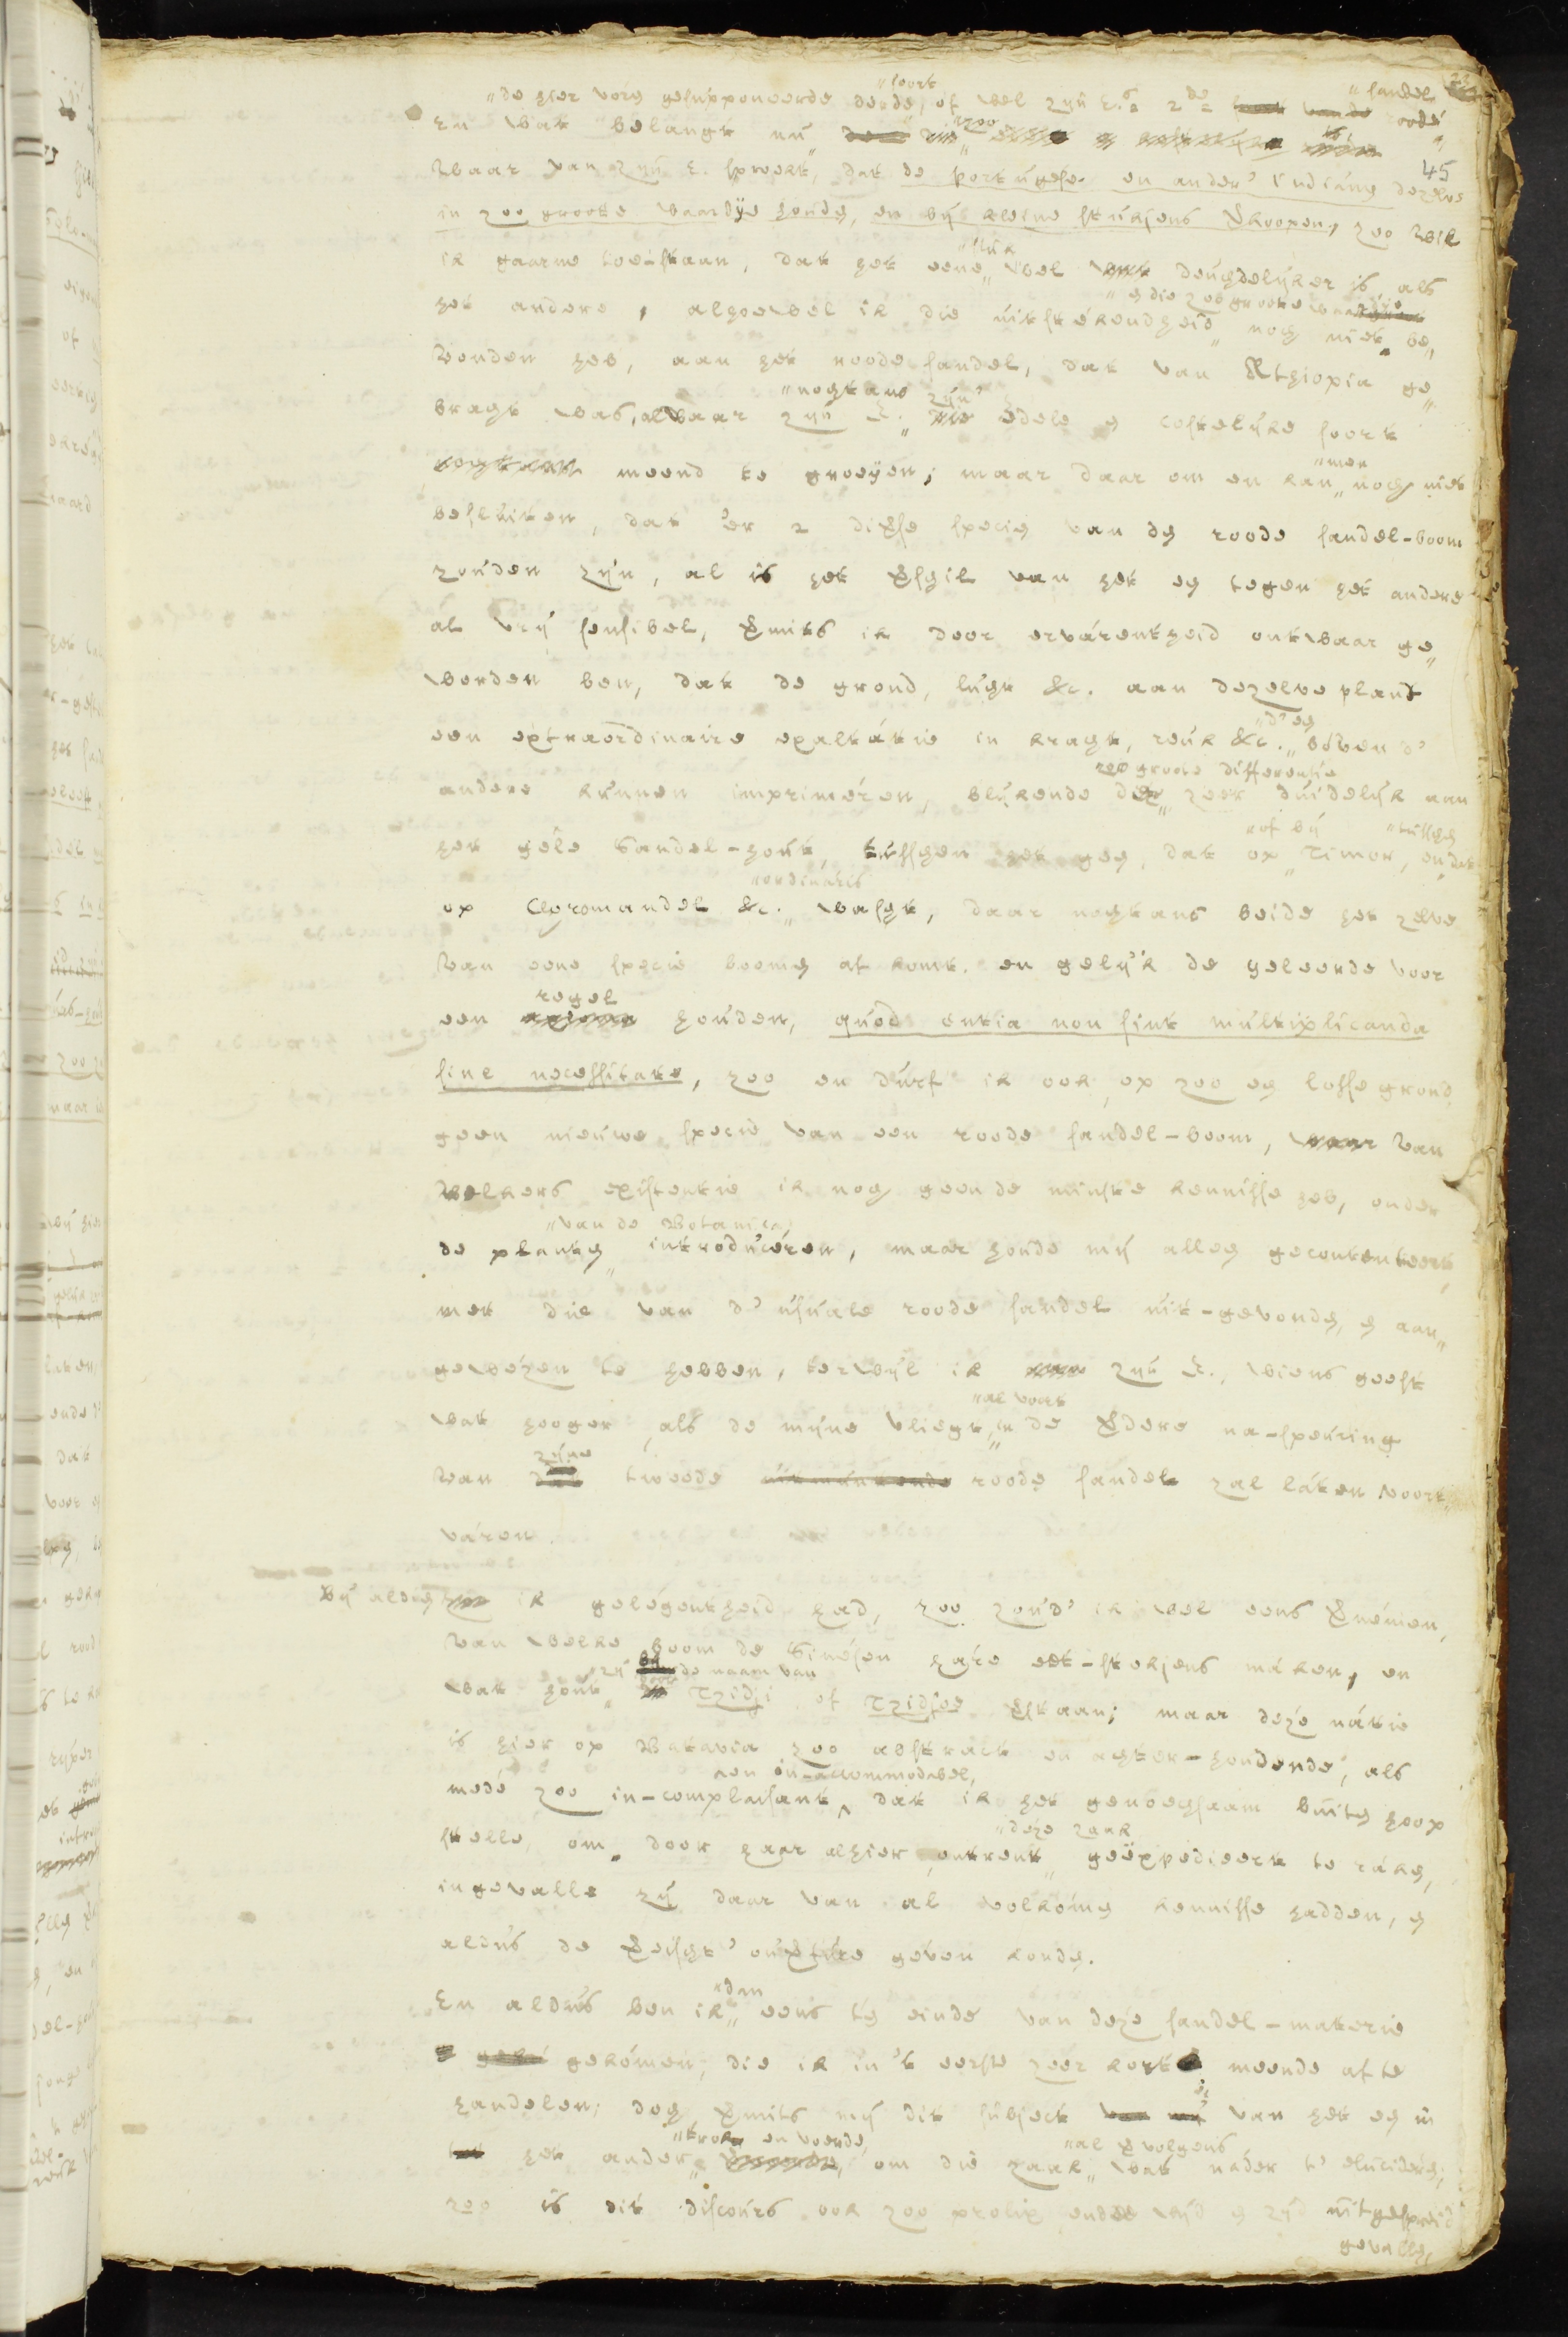 "soort "sandel
"de hier vorg gesupponeerde derde, of wel zyn E.s 2de roode
En wat belangt nu zoo
45
Waar van zyn E. spreekt, dat de portúgese en ander' Indiáng dezelve
in zoo groote waardye houde, en by kleine stukjens verkoopen, zoo wil
ik gaarne toe-staan, dat het eene "stuk wel deugdelyker is, als
het andere, alhoewel ik die uitstékendheid "en die zoo groote waardye nog niet be„
vonden heb, aan het roode sandel, dat van Ethiopia ge„
bragt was, alwaar zyn E. "nogtans zyn' edele en costelyke soort
meend te groeyen; maar daar om en kan "men nog niet
besluiten, dat 'er 2 diverse specien van den roode sandel-boom
zouden zyn, al is het verschil van het een tegen het andere
al vry sensibel, vermits ik door ervárentheid ontwaar ge„
worden ben, dat de grond, lugt &c. aan dezelve plant
een extraordinaire exaltátie in kragt, reuk &c. "d' een bóven d'
andere kunnen impriméren, blykende zeer duidelyk aan
zoo groote differentie
het géle Sandel-hout, tusschen het gen, dat op "of by Timor, en "tusschen dat
op Coromandel &c. "ordinaris wascht, daar nogtans beide het zelve
van eene specie boomen af komt. en gelyk de geleerde voor
een regel houden, quod entia non sint multiplicanda
sine necessitate, zoo en durf ik ook, op zoo een losse grond
geen nieuwe specie van een roode sandel-boom, van
welkers existentie ik nog geen de minste kennisse heb, onder
de planten "van de Botanica introducéren, maar houde my alleen gecontenteert
met die van d' usuale roode sandel uit-gevonden, en aan„
gewézen te hebben, terwyl ik zyn E., wiens geest
wat hooger als de myne vliegt, "al voort in de verdere na-speuring
van zyne tweede roode sandel zal láten voort„
váren.
By aldien ik gelégentheid had, zoo zoud' ik wel eens vernémen,
van welke boom de Sinésen hare eet-stokjens máken, en
wat hout zy de naam van Tzidji of Tzidjoe verstaan; maar deze nátie
is hier op Batavia zoo abstract en agter-houdende, als
mede zoo in-complaisant, "en on-accommodabel, dat ik het genoegsaam buiten hoop
stelle, om door haar alhier, ontrent "deze zaak geëxpedieert te ráken,
ingevalle zy daar van al volkómen kennisse hadden, en
aldus de vereischt' geven konden.
En aldus ben ik "dan eens ten einde van deze sandel-materie
gekómen, die ik in 't eerste zeer kort meende af te
handelen; dog vermits my dit subject van het een in
het ander "trok en voerde, om die zaak "al vervolgens wat náder t' elucideren,
zoo is dit discours ook zoo prolix ende wyd en zyd uitgespreid
gevallen,